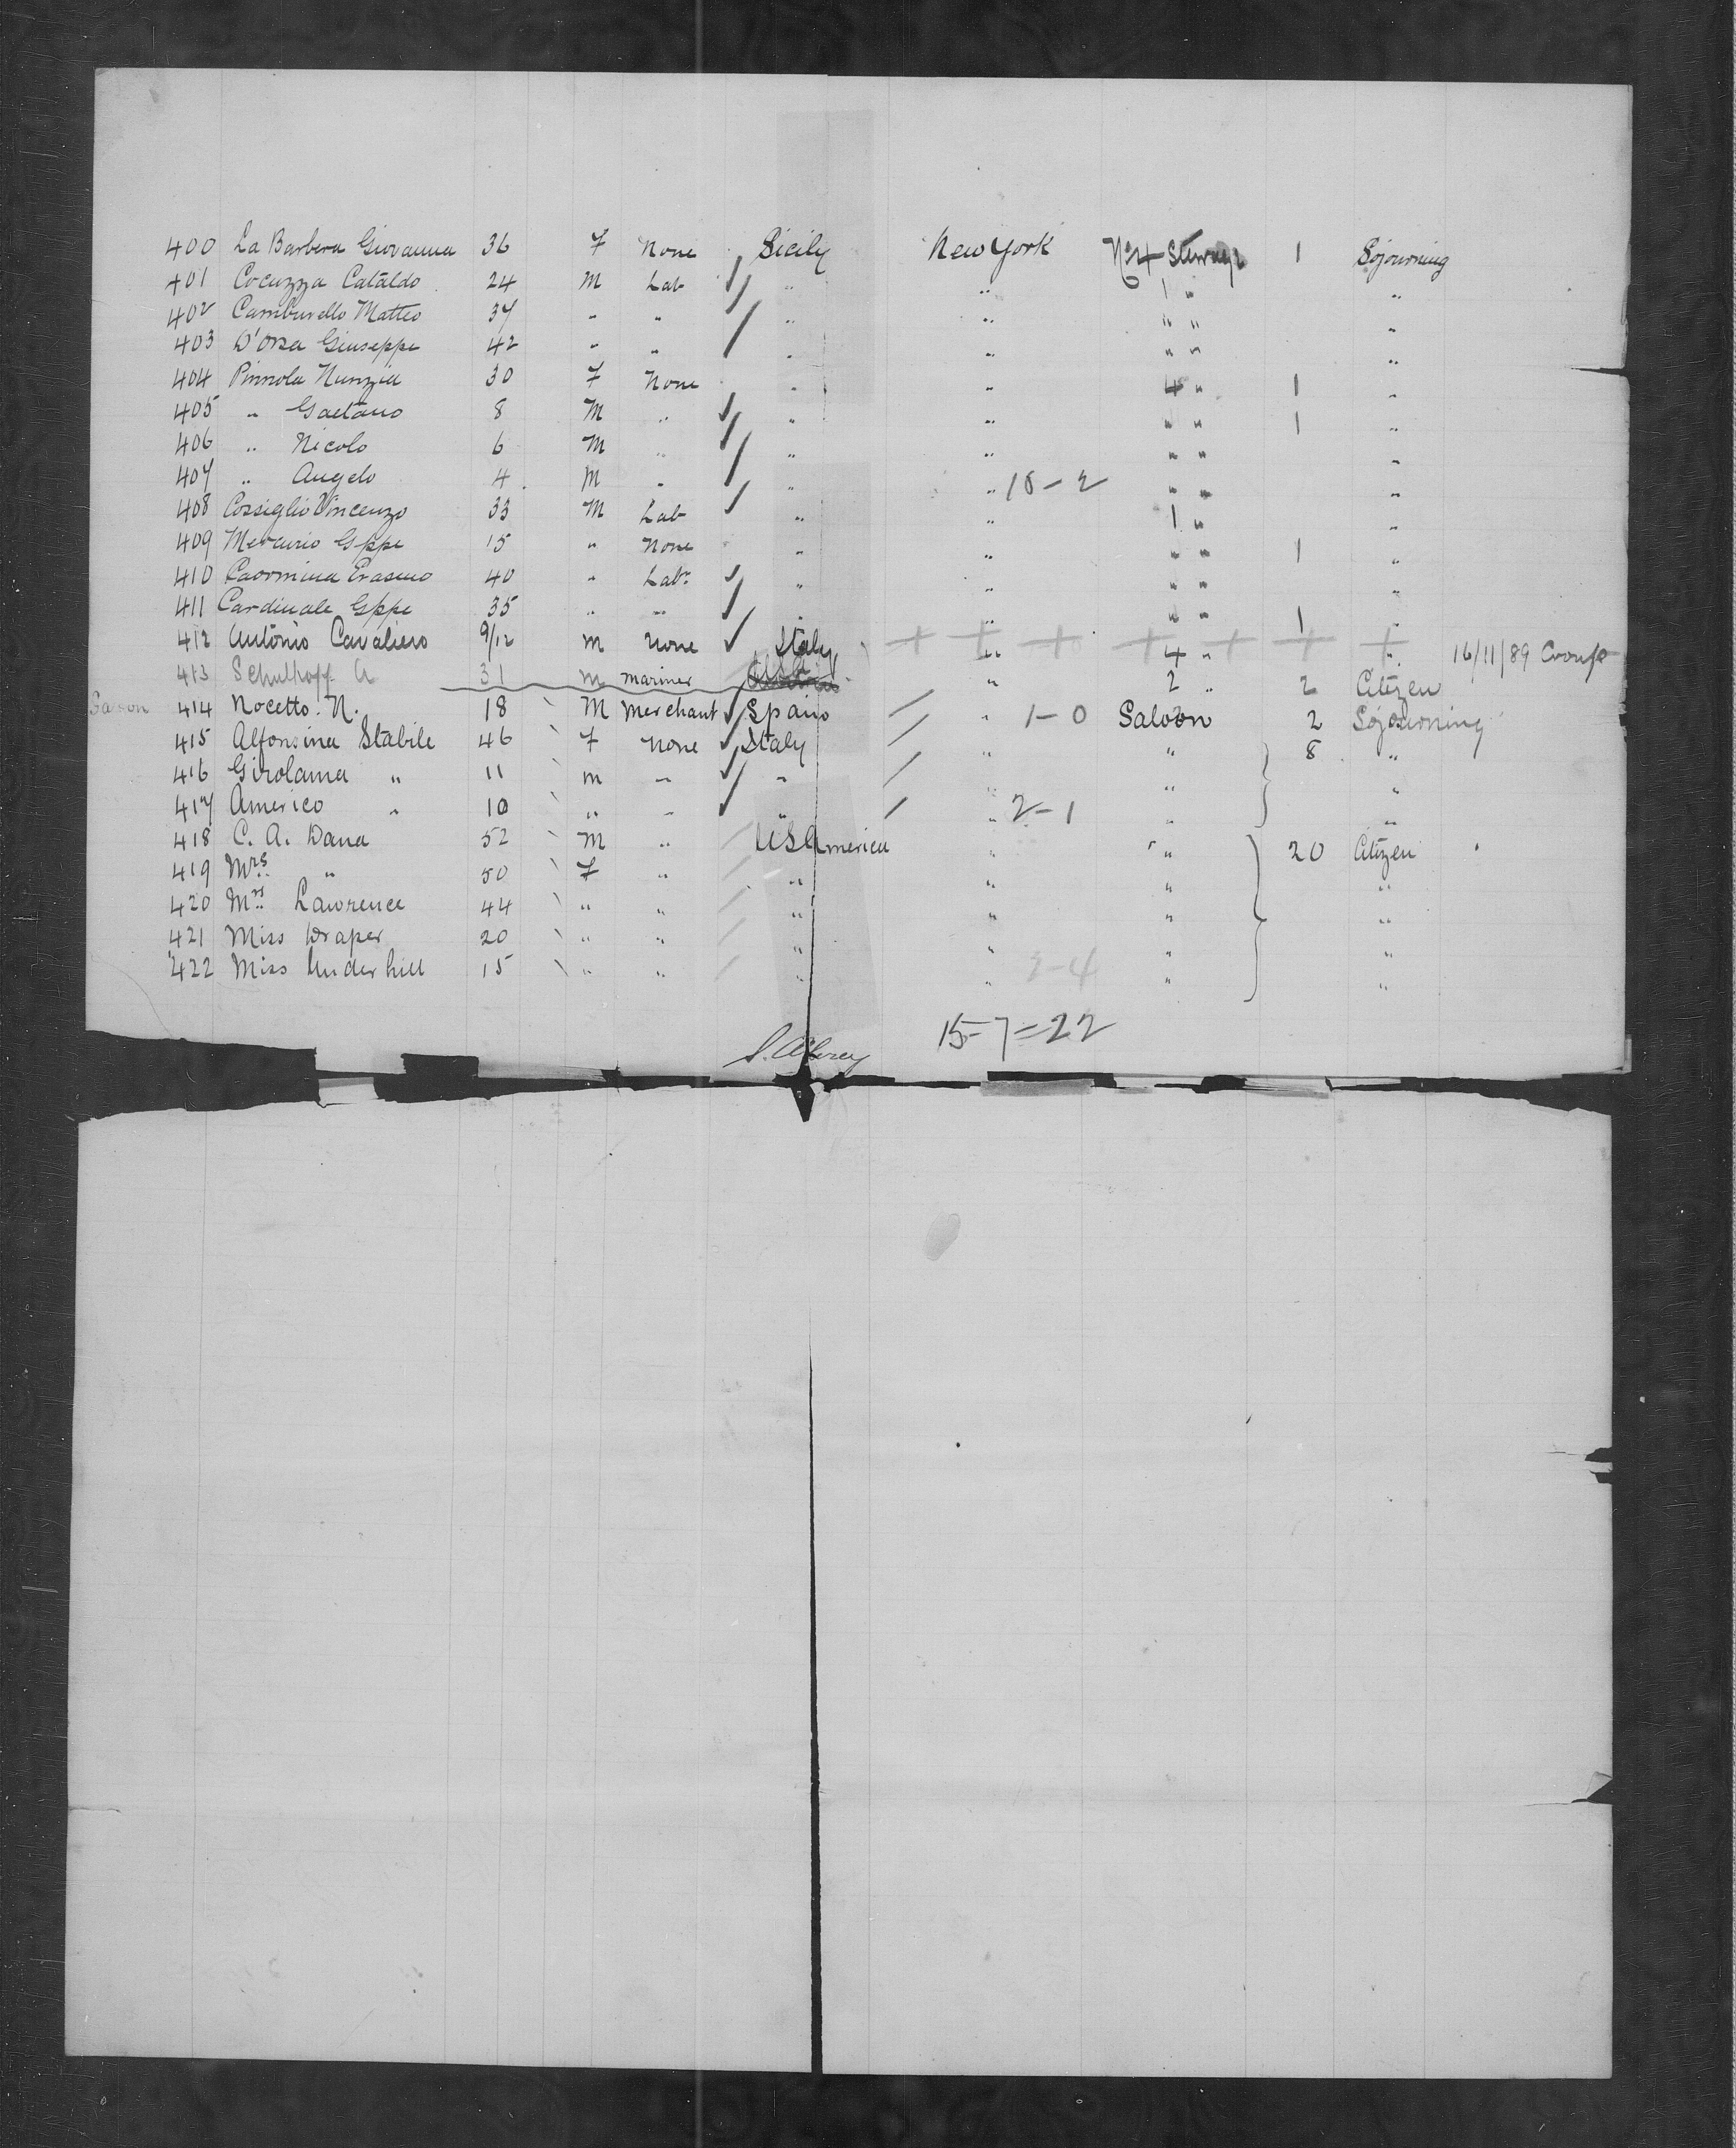 400 La Barbera Giovanna 36 F None Sicily New York No 4 Steerage 1 Sojourning
401 Cocuzza Cataldo 24 M Lab " " 1 " "
402 Camburello Matteo 37 " " " " " " "
403 D'Orsa Giuseppe 42 " " " " " " "
404 Pinnola Nunzia 30 F None " " 4 " 1 "
405 " Gaetano 8 M " " " " " 1 "
406 " Nicolo 6 M " " " " " "
407 " Angelo 4 M " " " 10-2 " " "
408 Cossiglio Vincenzo 33 M Lab " " 1 " "
409 Mercurio Gppe 15 " None " " " " 1 "
410 Caormina Erasmo 40 " Labr " " " " "
411 Cardinale Gppe 35 " " " " " " 1 "
412 Antonio Cavaliero 9/12 m None Italy " 4 " " 16/11/89 Croup
413 Schulhoff A 31 m mariner " 2 " 2 Citizen
414 Nocetto. N. 18 M Merchant Spain " 1-0 Saloon 2 Sojourning
415 Alfonsina Stabile 46 F None Italy " " 8 "
416 Girolama " 11 m " " " " "
417 Americo " 10 " " " " 2-1 " "
418 C. A. Dana 52 M " US America " " 20 Citizen
419 Mrs. " 50 F " " " " "
420 Mrs. Lawrence 44 " " " " " "
421 Miss Draper 20 " " " " " "
422 Miss Underhill 15 " " " " 3-4 " "
15-7=22